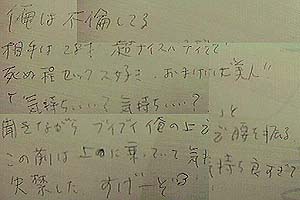 俺は不倫してる
相手は28才 超ナイスバディでで
死ぬ程セックス好き、おまけに"美人"
「気持ちいい？気持ちいい…？」と
聞きながら ブイブイ俺の上で腰を振る
この前は上に乗っていて気持ち良すぎて
失禁した すげーぞ